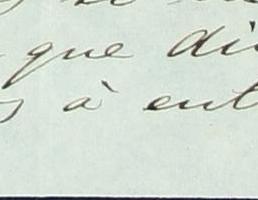 que di
s à ent